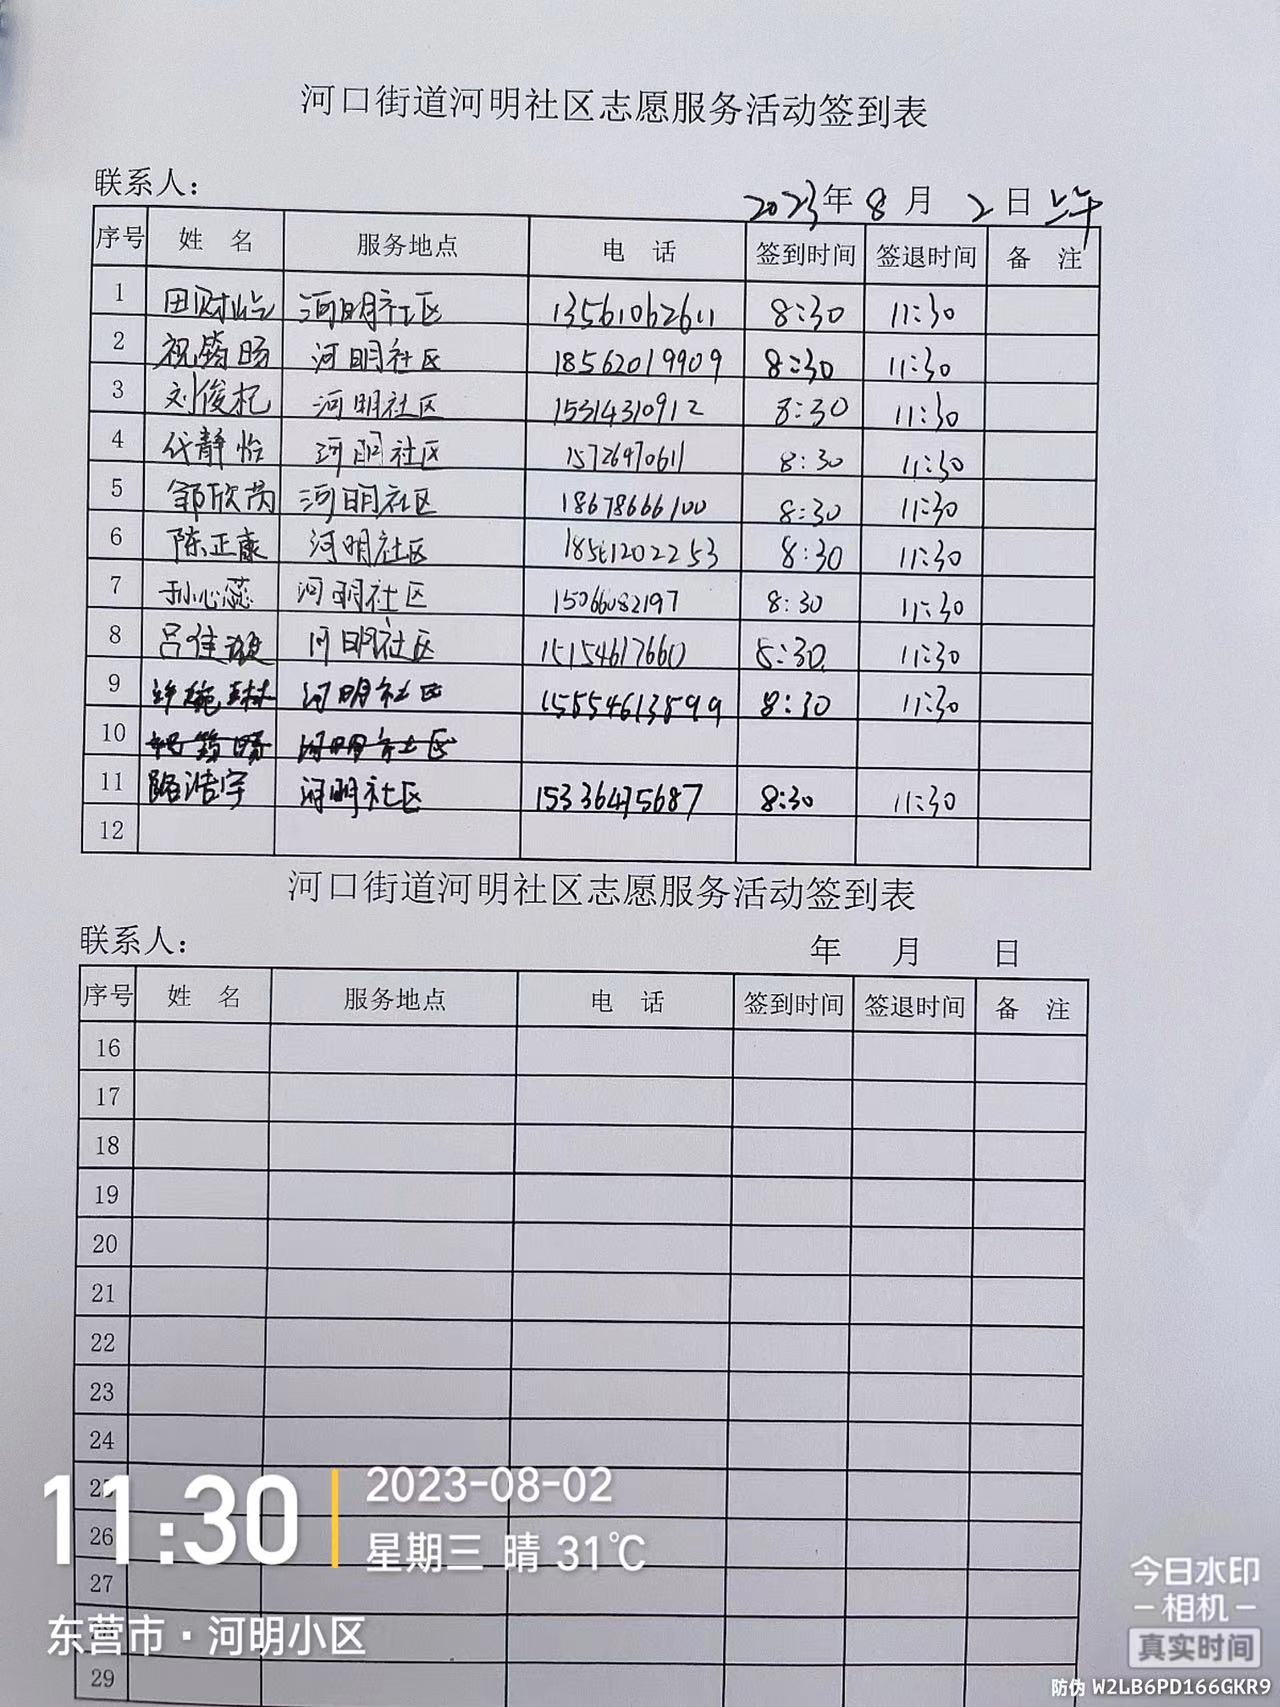 河口街道河明社区志愿服务活动签到表
联系人：
2023年 8 月 2 日 上午
序号 姓 名 服务地点 电 话 签到时间 签退时间 备 注
1 田财 河明社区 13561062611 8:30 11:30
2 祝筠旸 河明社区 18562019909 8:30 11:30
3 刘俊杞 河明社区 15314310912 8:30 11:30
4 代静怡 河明社区 15726470611 8:30 11:30
5 邹欣芮 河明社区 18678666100 8:30 11:30
6 陈正康 河明社区 18561202253 8:30 11:30
7 孙心蕊 河明社区 15066082197 8:30 11:30
8 吕佳璇 河明社区 15154617660 8:30 11:30
9 许琬琳 河明社区 15554613899 8:30 11:30
10 祝筠旸 河明社区
11 路浩宇 河明社区 15336475687 8:30 11:30
12
河口街道河明社区志愿服务活动签到表
联系人：
年 月 日
序号 姓 名 服务地点 电 话 签到时间 签退时间 备 注
16
17
18
19
20
21
22
23
24
25
26
27
29
11:30
2023-08-02
星期三 晴 31℃
东营市·河明小区
今日水印
相机
真实时间
防伪 W2LB6PD166GKR9